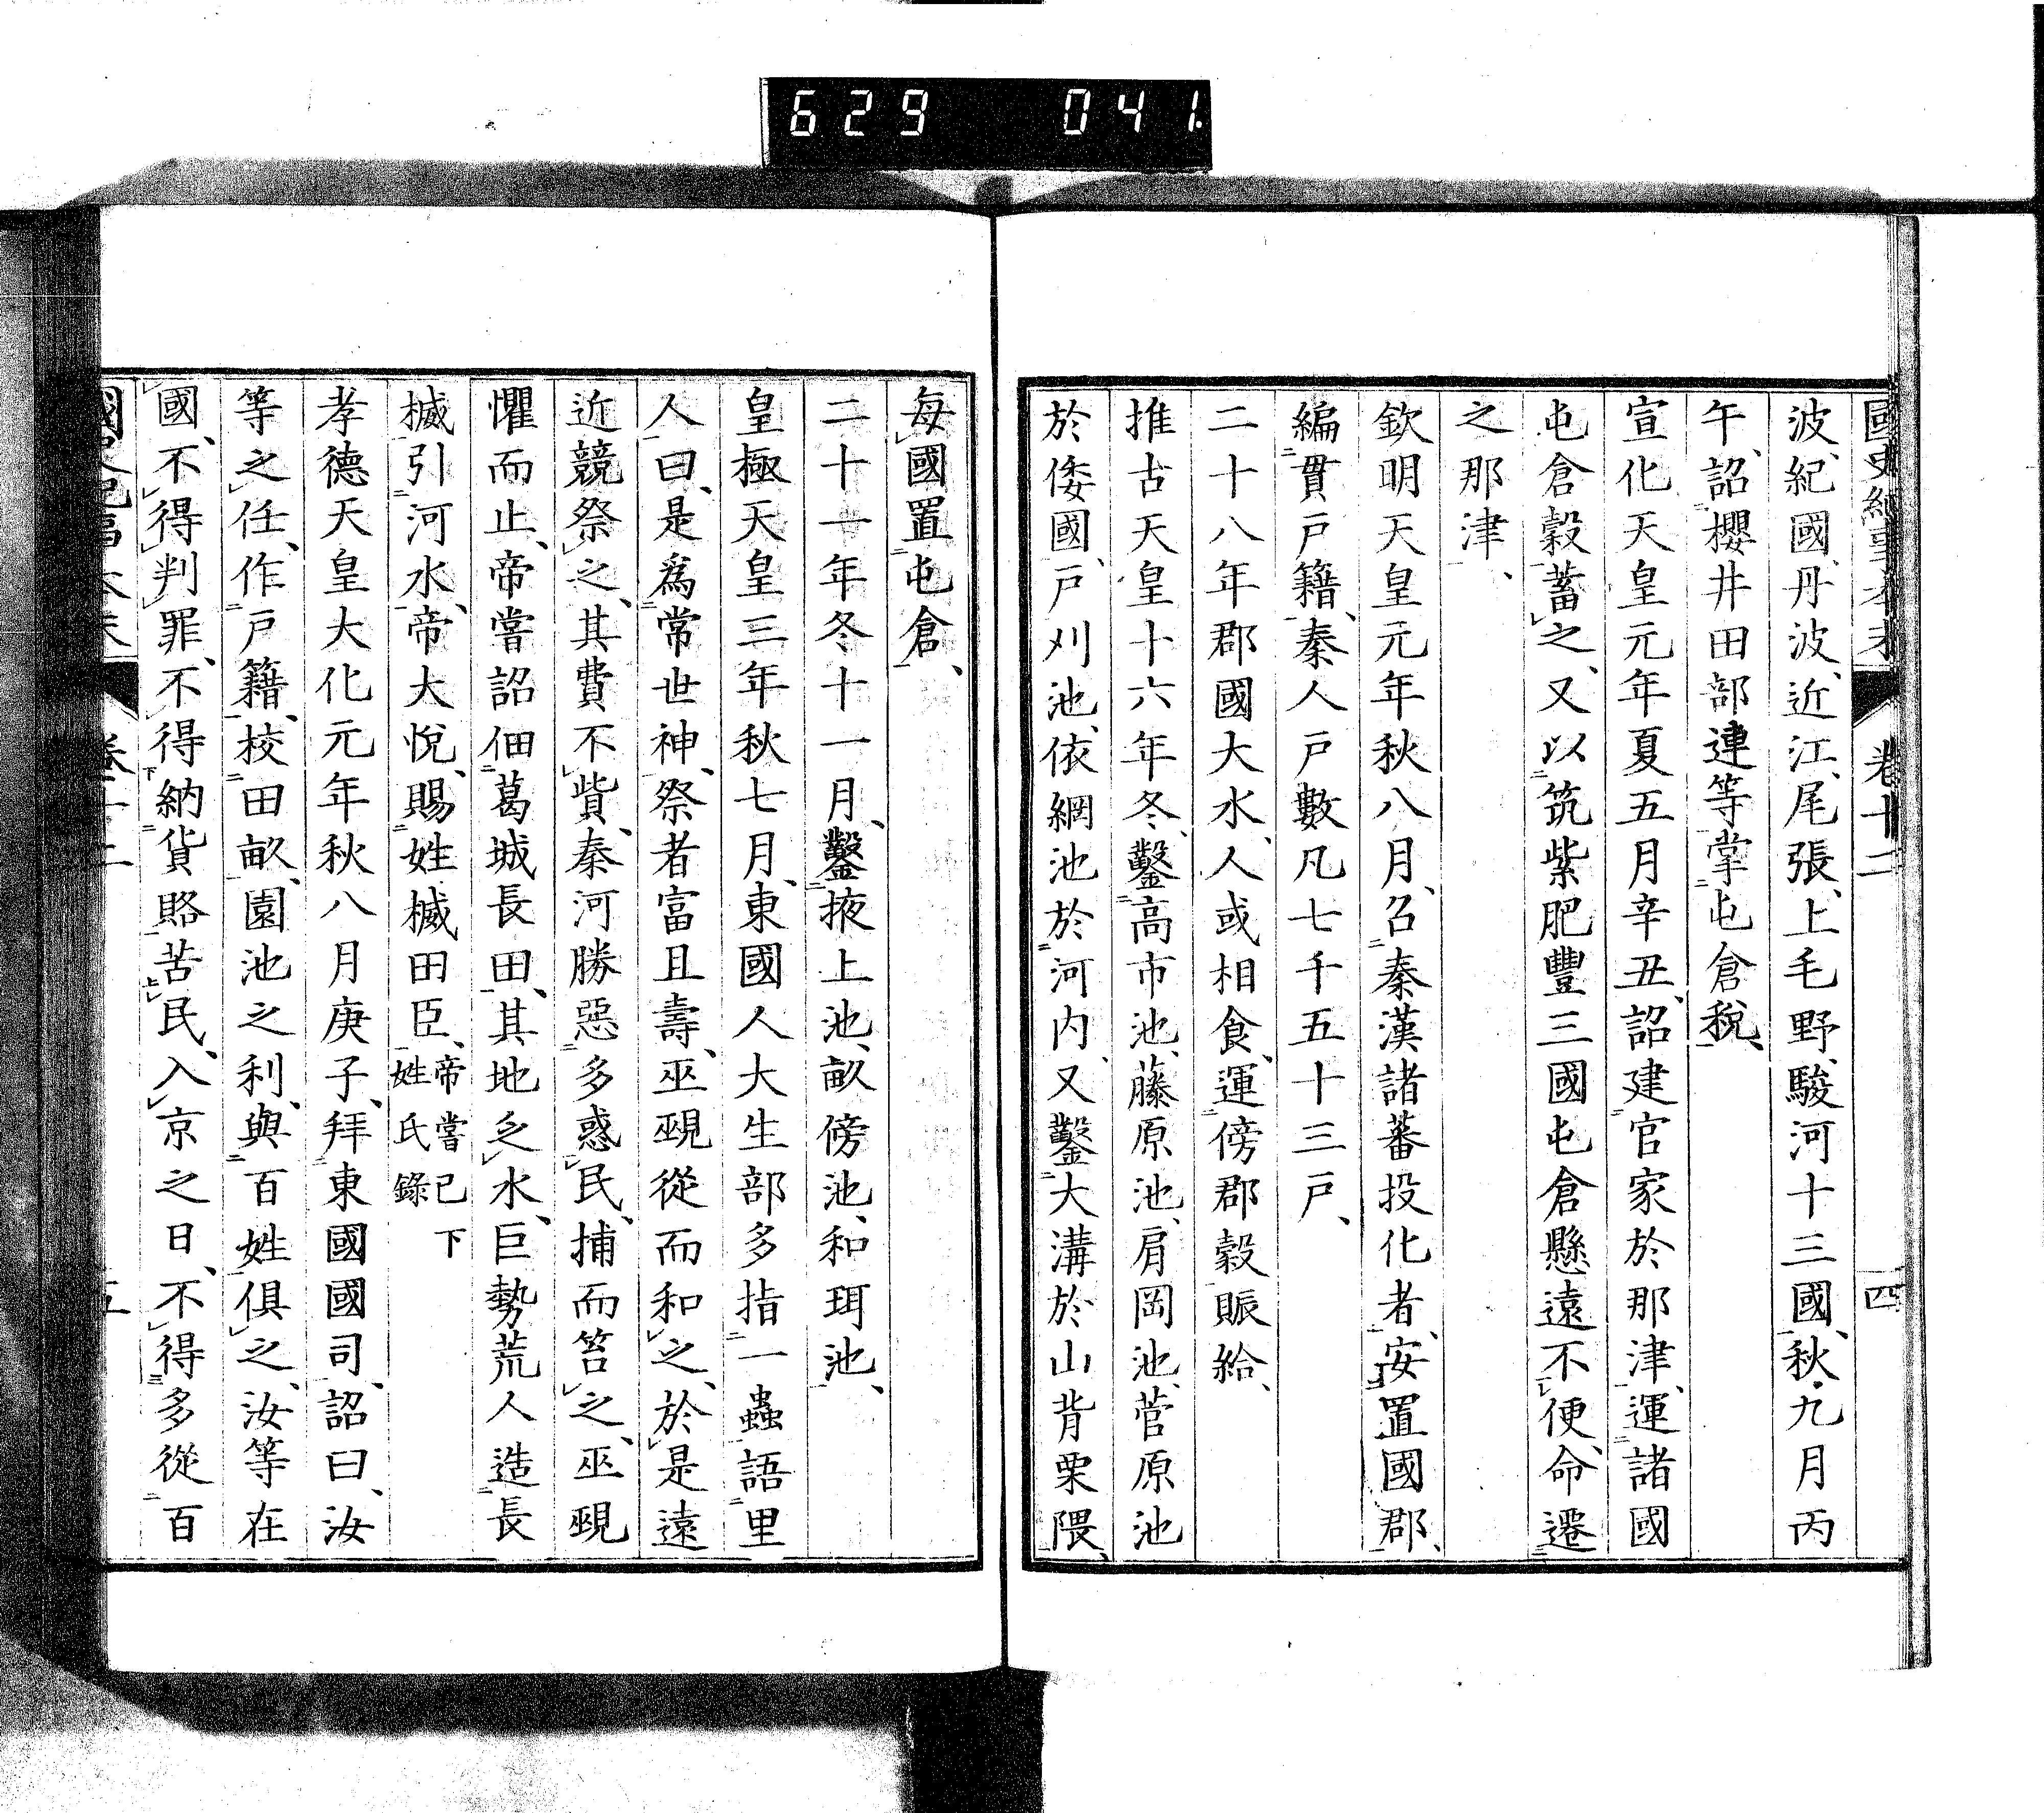 629 041
國史紀事本末 卷十二 四
波、紀國、丹波、近江、尾張、上毛野、駿河十三國、秋九月丙
午、詔櫻井田部連等掌屯倉稅、
宣化天皇元年夏五月辛丑、詔建官家於那津、運諸國
屯倉穀蓄之、又以筑紫肥豐三國屯倉懸遠不便、命遷
之那津、
欽明天皇元年秋八月、召秦漢諸蕃投化者、安置國郡、
編貫戸籍、秦人戸數凡七千五十三戸、
二十八年郡國大水、人或相食、運傍郡穀賑給、
推古天皇十六年冬、鑿高市池、藤原池、肩岡池、菅原池
於倭國、戸刈池、依網池於河内、又鑿大溝於山背栗隈、
每國置屯倉、
二十一年冬十一月、鑿掖上池、畝傍池、和珥池、
皇極天皇三年秋七月、東國人大生部多指一蟲語里
人曰、是爲常世神、祭者富且壽、巫覡從而和之、於是遠
近競祭之、其費不貲、秦河勝惡多惑民、捕而笞之、巫覡
懼而止、帝嘗詔佃葛城長田、其地乏水、巨勢荒人造長
槭引河水、帝大悅、賜姓槭田臣、帝嘗已下姓氏錄
孝德天皇大化元年秋八月庚子、拜東國國司、詔曰、汝
等之任、作戸籍、校田畝、園池之利、與百姓俱之、汝等在
國、不得判罪、不得納貨賂苦民、入京之日、不得多從百
國史紀事本末 卷十二 五